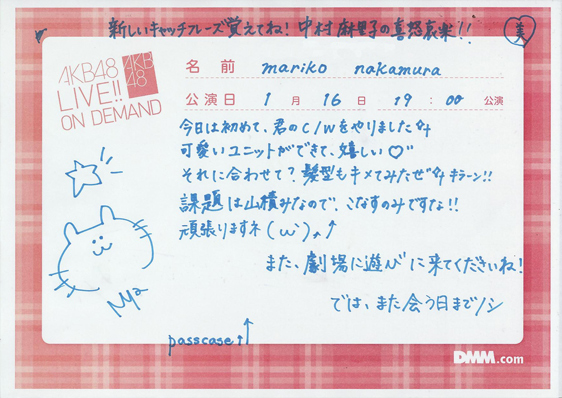 新しいキャッチフレーズ覚えてね！中村麻里子の喜怒哀楽!!
美
AKB48
LIVE!!
ON DEMAND
AKB
48
名前 mariko nakamura
公演日 1月16日 19:00 公演
今日は初めて、君のC/Wをやりました
可愛いユニットができて、嬉しい♡
それに合わせて？髪型もキメてみたぜキラーン!!
課題は山積みなので、こなすのみですな!!
頑張りますネ(ω)↑
また、劇場に遊びに来てくださいね！
では、また会う日までノシ
passcase↑
DMM.com